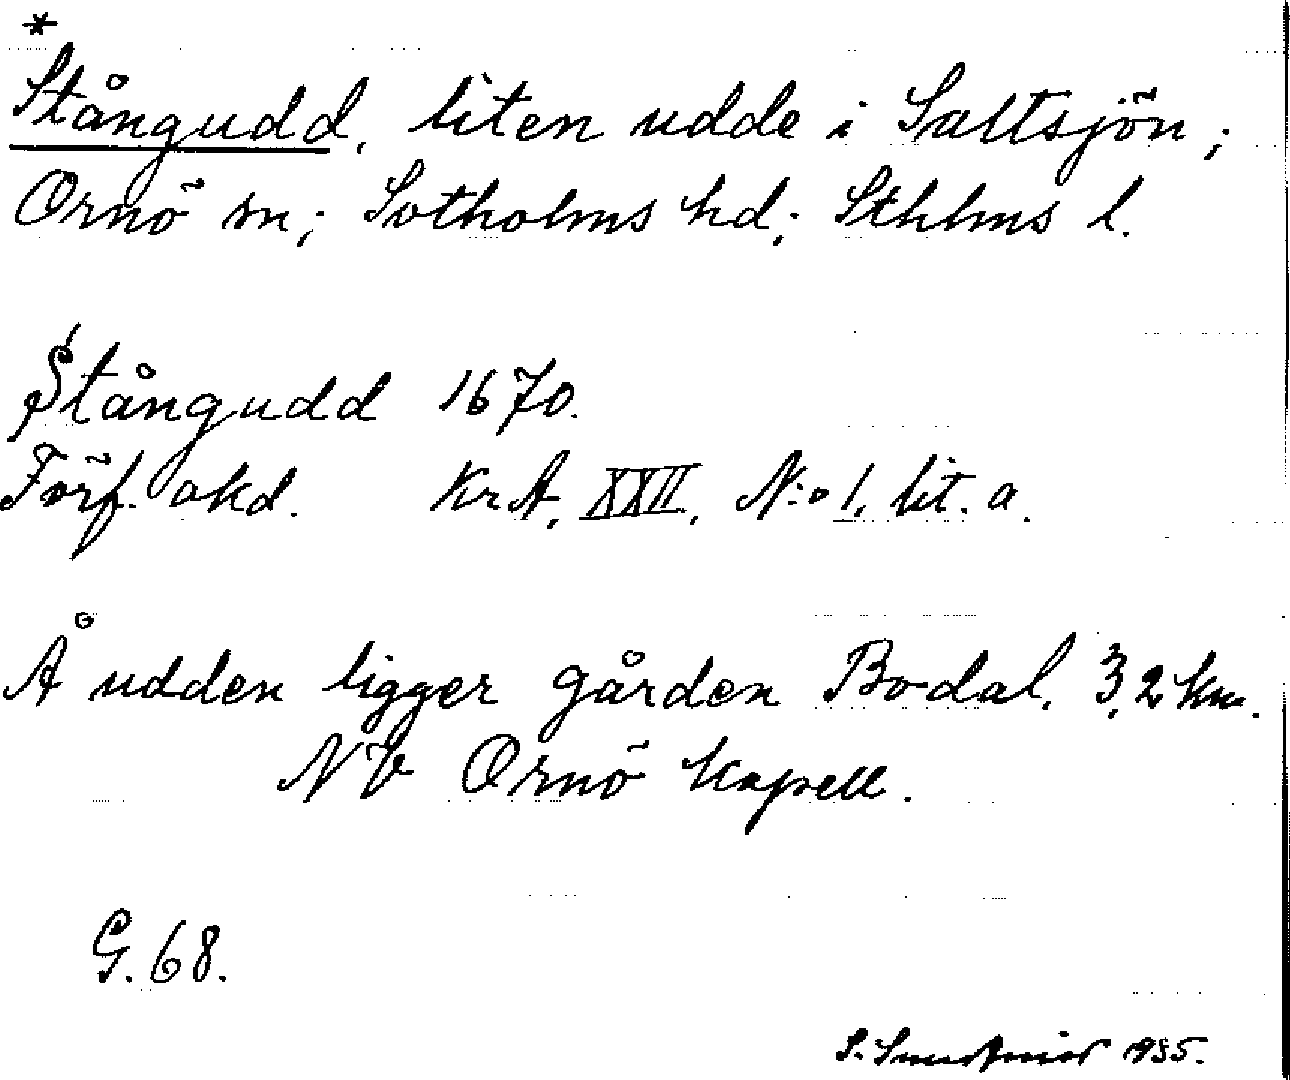 *
Stångudd, liten udde i Saltsjön;
Ornö sn; Sotholms hd; Sthlms l.
Stångudd 1670.
Förf. akd. KrA, XXII, N:o 1, lit. a.
Å udden ligger gården Bodal, 3,2 km.
NV Ornö kapell.
G. 68.
S. 1935.